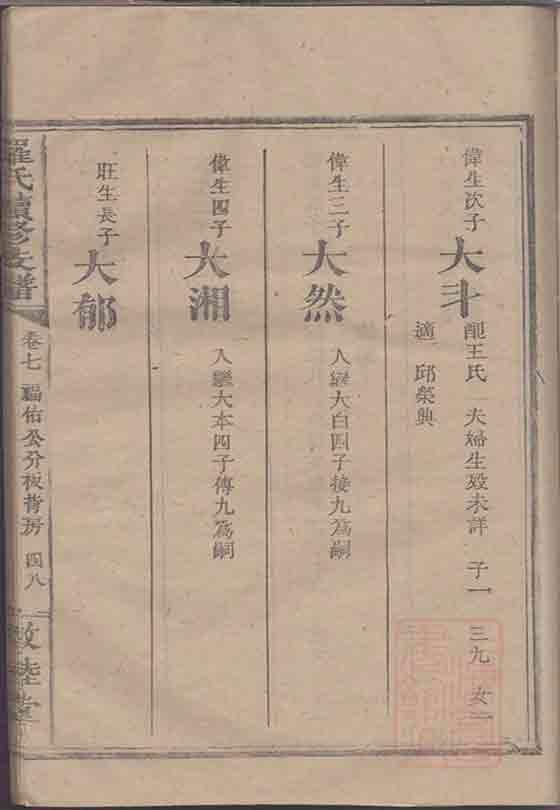 偉生次子
大斗
配王氏 夫婦生歿未詳 子一 三九 女一
適 邱榮興
偉生三子
大然
入繼大白四子接九爲嗣
偉生四子
大湘
入繼大本四子傳九爲嗣
旺生長子
大郁
羅氏續修支譜
卷七 福佑公分板背房 四八
敦睦堂